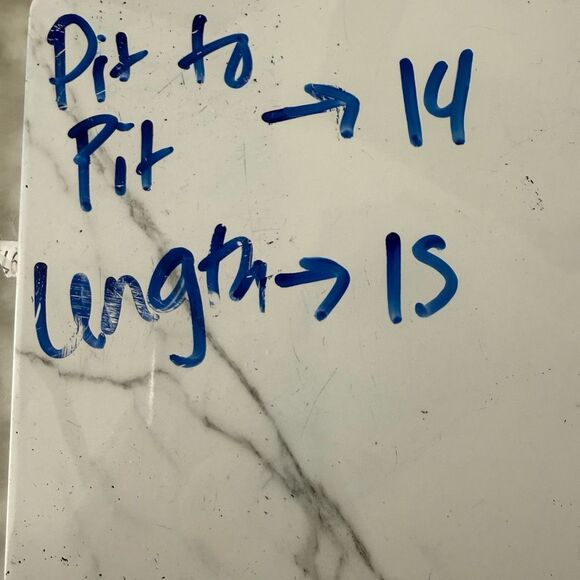 Pit to
Pit → 14
length → 15